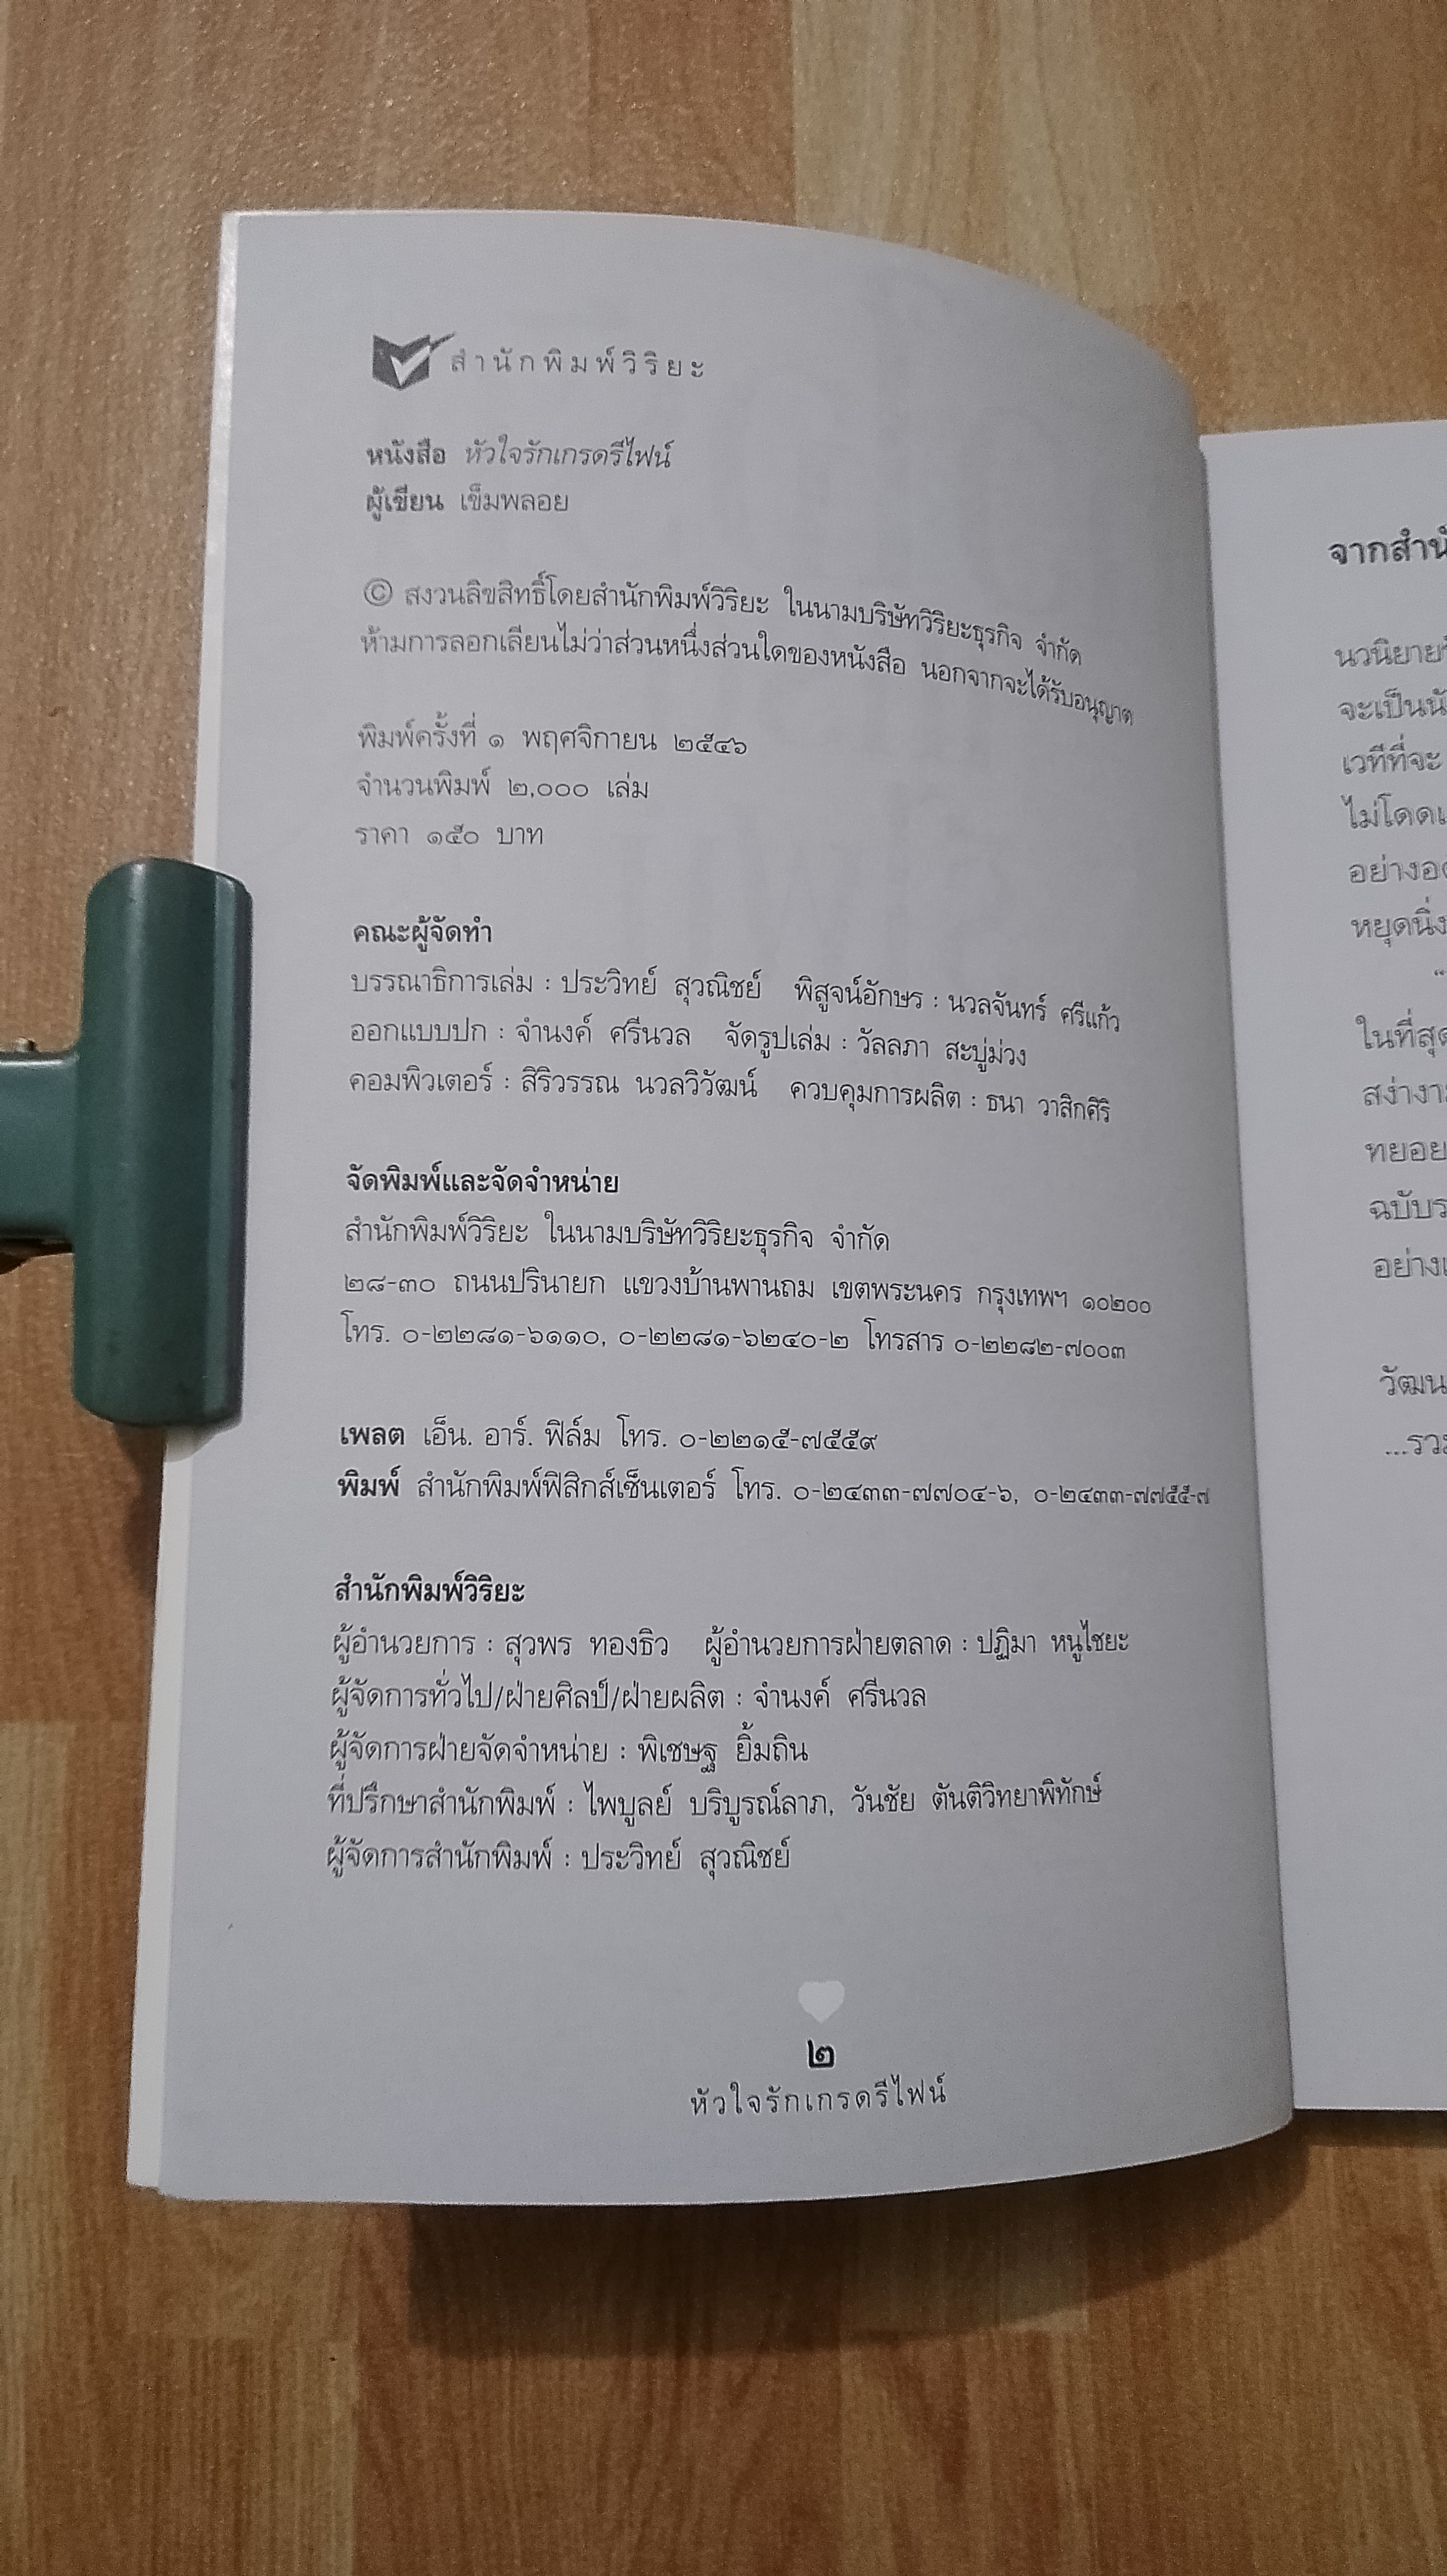 สำนักพิมพ์วิริยะ
หนังสือ หัวใจรักเกรดรีไฟน์
ผู้เขียน เข็มพลอย
© สงวนลิขสิทธิ์โดยสำนักพิมพ์วิริยะ ในนามบริษัทวิริยะธุรกิจ จำกัด
ห้ามการลอกเลียนไม่ว่าส่วนหนึ่งส่วนใดของหนังสือ นอกจากจะได้รับอนุญาต
พิมพ์ครั้งที่ ๑ พฤศจิกายน ๒๕๔๖
จำนวนพิมพ์ ๒,๐๐๐ เล่ม
ราคา ๑๕๐ บาท
คณะผู้จัดทำ
บรรณาธิการเล่ม : ประวิทย์ สุวณิชย์ พิสูจน์อักษร : นวลจันทร์ ศรีแก้ว
ออกแบบปก : จำนงค์ ศรีนวล จัดรูปเล่ม : วัลลภา สะบู่ม่วง
คอมพิวเตอร์ : สิริวรรณ นวลวิวัฒน์ ควบคุมการผลิต : ธนา วาสิกศิริ
จัดพิมพ์และจัดจำหน่าย
สำนักพิมพ์วิริยะ ในนามบริษัทวิริยะธุรกิจ จำกัด
๒๘-๓๐ ถนนปรินายก แขวงบ้านพานถม เขตพระนคร กรุงเทพฯ ๑๐๒๐๐
โทร. ๐-๒๒๘๑-๖๑๑๐, ๐-๒๒๘๑-๖๒๔๐-๒ โทรสาร ๐-๒๒๘๒-๗๐๐๓
เพลต เอ็น. อาร์. ฟิล์ม โทร. ๐-๒๒๑๕-๗๕๕๙
พิมพ์ สำนักพิมพ์ฟิสิกส์เซ็นเตอร์ โทร. ๐-๒๔๓๓-๗๗๐๔-๖, ๐-๒๔๓๓-๗๗๕๕-๗
สำนักพิมพ์วิริยะ
ผู้อำนวยการ : สุวพร ทองธิว ผู้อำนวยการฝ่ายตลาด : ปฏิมา หนูไชยะ
ผู้จัดการทั่วไป/ฝ่ายศิลป์/ฝ่ายผลิต : จำนงค์ ศรีนวล
ผู้จัดการฝ่ายจัดจำหน่าย : พิเชษฐ ยิ้มถิน
ที่ปรึกษาสำนักพิมพ์ : ไพบูลย์ บริบูรณ์ลาภ, วันชัย ตันติวิทยาพิทักษ์
ผู้จัดการสำนักพิมพ์ : ประวิทย์ สุวณิชย์
๒
หัวใจรักเกรดรีไฟน์
จะเป็น
เวทีที่จะ
หยุดนิ่ง